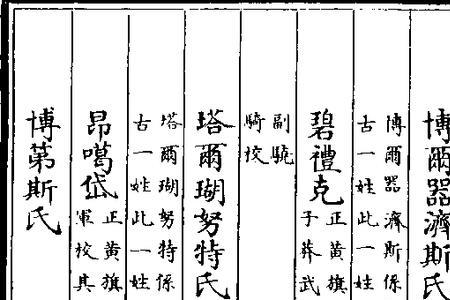 博爾器濟斯氏
博爾器濟斯係
古一姓此一姓
碧禮克正黃旗
子葬武
副驍
騎校
塔爾瑚努特氏
塔爾瑚努特係
古一姓此一姓
昂噶岱正黃旗
軍校其
博第斯氏